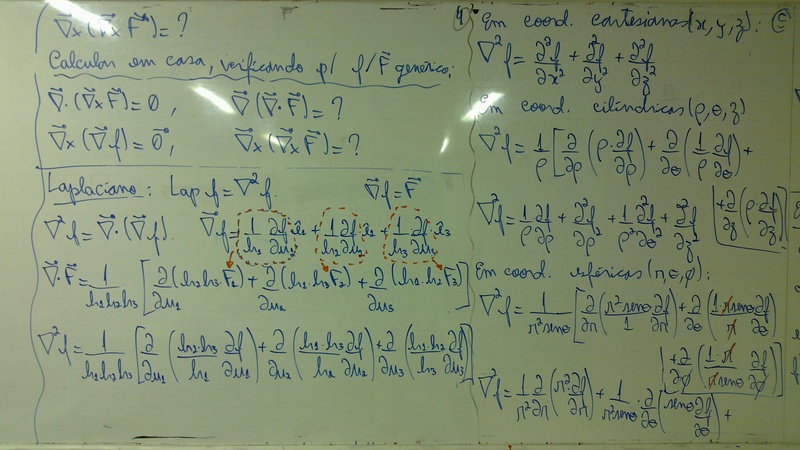 ∇⃗x(∇⃗xF⃗)=?
Calcular em casa, verificando p/ f/F⃗ genérico:
∇⃗·(∇⃗xF⃗)=0, ∇⃗(∇⃗·F⃗)=?
∇⃗x(∇⃗f)=0⃗, ∇⃗x(∇⃗xF⃗)=?
Laplaciano: Lap f=∇²f. ∇⃗f=F⃗
∇²f=∇⃗·(∇⃗f). ∇⃗f=1/h₁ ∂f/∂u₁·e₁+1/h₂ ∂f/∂u₂·e₂+1/h₃ ∂f/∂u₃·e₃
∇⃗·F⃗=1/(h₁h₂h₃)[∂/∂u₁(h₂h₃·F₁)+∂/∂u₂(h₁·h₃F₂)+∂/∂u₃(h₁·h₂F₃)]
∇²f=1/(h₁h₂h₃)[∂/∂u₁(h₂·h₃/h₁ ∂f/∂u₁)+∂/∂u₂(h₁·h₃/h₂ ∂f/∂u₂)+∂/∂u₃(h₁h₂/h₃ ∂f/∂u₃)]
4) Em coord. cartesianas(x,y,z):
∇²f=∂²f/∂x²+∂²f/∂y²+∂²f/∂z²
Em coord. cilíndricas(ρ,θ,z)
∇²f=1/ρ[∂/∂ρ(ρ·∂f/∂ρ)+∂/∂θ(1/ρ ∂f/∂θ)+
+∂/∂z(ρ·∂f/∂z)]
∇²f=1/ρ ∂f/∂ρ+∂²f/∂ρ²+1/ρ² ∂²f/∂θ²+∂²f/∂z²
Em coord. esféricas(r,θ,φ):
∇²f=1/(r²senθ)[∂/∂r(r²senθ/1·∂f/∂r)+∂/∂θ(1·r senθ/r ∂f/∂θ)
+∂/∂φ(1·r/(r senθ) ∂f/∂φ)]
∇²f=1/r² ∂/∂r(r²·∂f/∂r)+1/(r²senθ)·∂/∂θ(senθ ∂f/∂θ)+